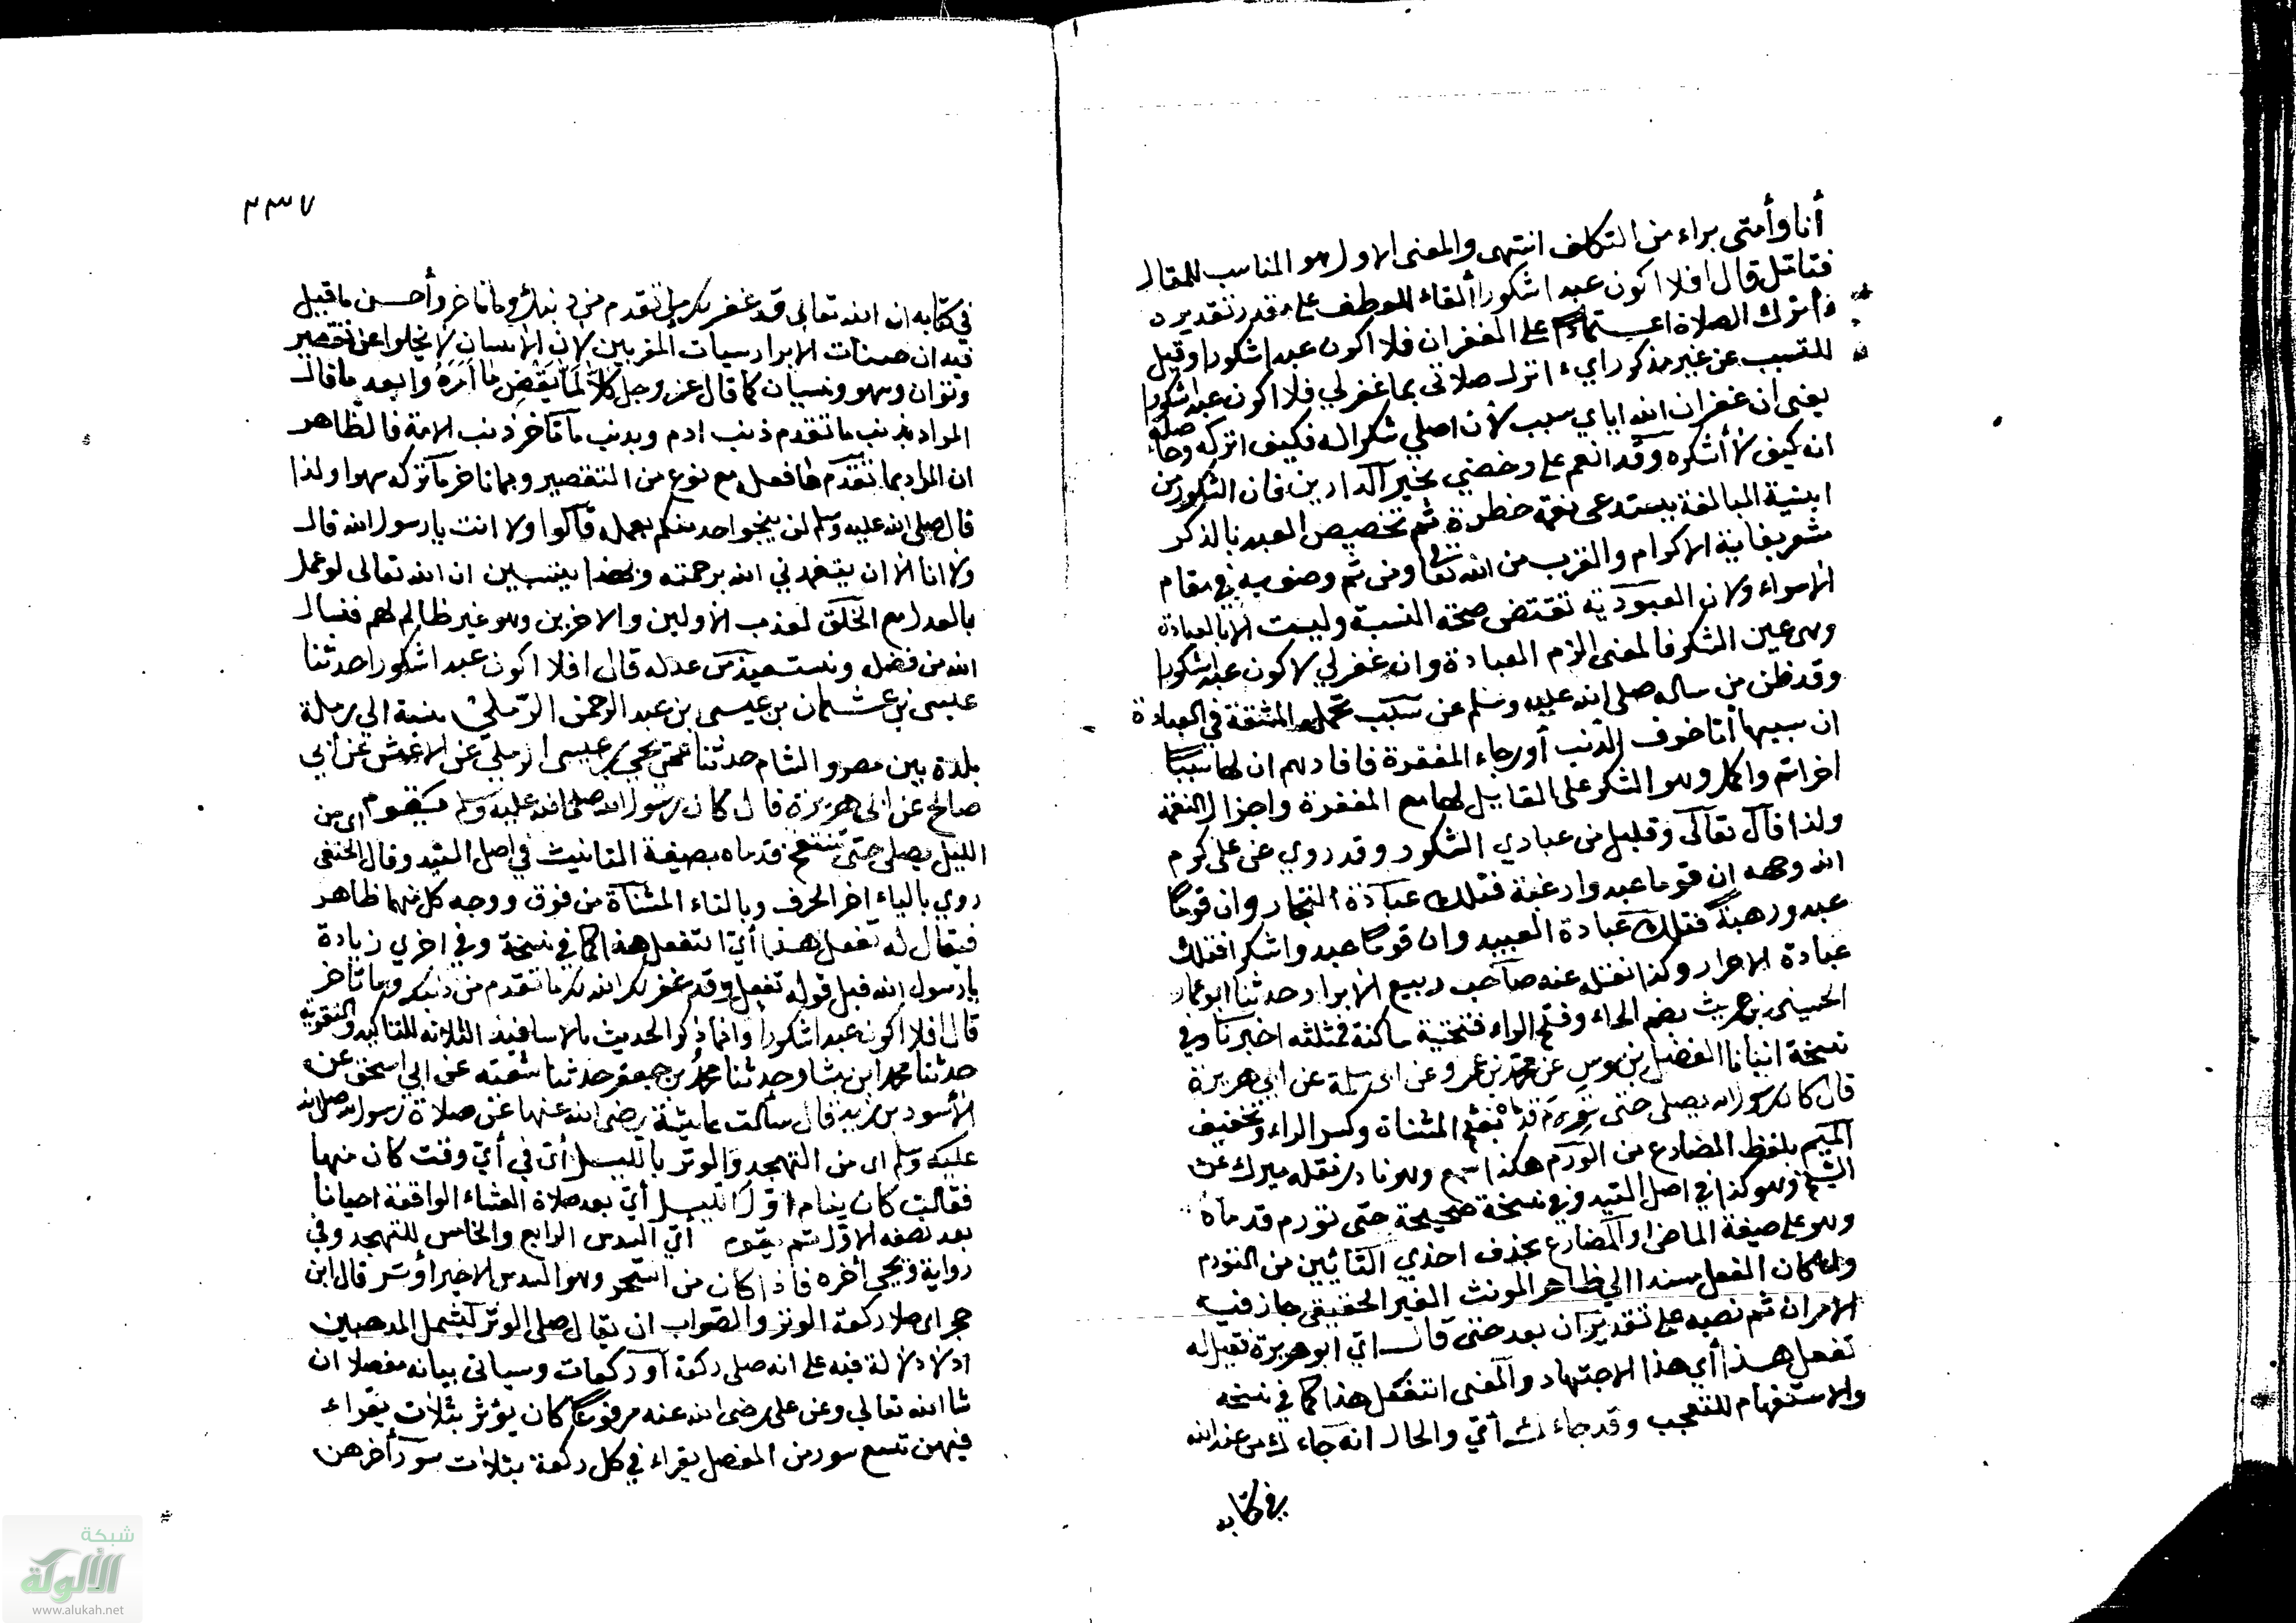 أنا وأمتى براء من التكلف انتهى والمعنى الاول هو المناسب للمقال
فتامل قال افلا اكون عبدا شكورا ألفاء للعطف على مقدر تقديره
ءأترك الصلاة اعتمادا على الغفران فلا اكون عبدا شكورا وقيل
للتسبب عن غير مذكور اي ء اترك صلاتى بما غفر لي فلا اكون عبدا شكورا
يعنى ان غفران الله اياي سبب لأن اصلي شكرا له فكيف اتركه وحاصله
انه كيف لا أشكره وقد انعم على وخصني بخير الدارين فان الشكور من
ابنية المبالغة يستدعى نعمة خطرة ثم تخصيص العبد بالذكر
مشعر بغاية الاكرام والقرب من الله تعالى ومن ثم وصف به في مقام
الاسراء ولان العبودية تقتضى صحة النسبة وليست الا بالعبادة
وهى عين الشكر فالمعنى الزم العبادة وان غفر لي لاكون عبدا شكورا
وقد ظن من ساله صلى الله عليه وسلم عن سبب تحمله المشقة في العبادة
ان سببها اما خوف الذنب أو رجاء المغفرة فافادهم ان لها سببا
اخر اتم واكمل وهو الشكر على التاهيل لها مع المغفرة واجزال النعمة
ولذا قال تعالى وقليل من عبادي الشكور وقد روي عن على كرم
الله وجهه ان قوما عبدوا رغبة فتلك عبادة التجار وان قوما
عبدو رهبة فتلك عبادة العبيد وان قوما عبدوا شكرا فتلك
عبادة الاحرار وكذا نقله عنه صاحب ربيع الابرار حدثنا ابو عمار
الحسين بن حريث بضم الحاء وفتح الراء فتحتية ساكنة فمثلثه اخبرنا وفي
نسخة انبانا الفضل بن موسى عن محمد بن عمرو عن ابى سلمة عن ابي هريرة
قال كان رسول الله يصلى حتى تَرِمَ قدماه بفتح المثناة وكسر الراء وتخفيف
الميم بلفظ المضارع من الورم هكذا سمع وهو نادر نقله ميرك عن
الشيخ وهو كذا في اصل السيد وفي نسخة صحيحة حتى تورم قدماه
وهو على صيغة الماضى او المضارع بحذف احدي التائين من التورم
ولما كان الفعل مسندا الي ظاهر المونث الغير الحقيقى جاز فيه
الامران ثم نصبه على تقدير ان بعد حتى قال اي ابو هريرة فقيل له
تفعل هذا أي هذا الاجتهاد والمعنى اتفعل هذا كما في نسخه
والاستفهام للتعجب وقد جاءك أي والحال انه جاءك من عند الله
في كتابه
٢٣٧
في كتابه ان الله تعالى قد غفر لك ما تقدم من ذنبك وما تاخر وأحسن ما قيل
فيه ان حسنات الابرار سيات المقربين لان الانسان لا يخلوا عن تقصير
وتوان وسهو ونسيان كما قال عز وجل كَلَّا لَمَّا يَقْضِ مَا أَمَرَهُ وابعد ما قال
المراد بذنب ما تقدم ذنب ادم وبذنب ما تاخر ذنب الامة فالظاهر
ان المراد بما تقدم ما فعل مع نوع من التقصير وبما تاخر ما تركه سهوا ولذا
قال صلى الله عليه وسلم لن ينجو احد منكم بعمله قالوا ولا انت يا رسول الله قال
ولا انا الا ان يتغمدني الله برحمته وبهذا يتبين ان الله تعالى لو عمل
بالعدل مع الخلق لعذب الأولين والاخرين وهو غير ظالم لهم فنسال
الله من فضله ونستعيذ من عدله قال افلا اكون عبدا شكورا حدثنا
عيسى بن عثمان بن عيسى بن عبد الرحمن الرملي نسبة الي رملة
بلدة بين مصر والشام حدثنا عمى يحيى بن عيسى الرملي عن الاعمش عن أبي
صالح عن ابى هريرة قال كان رسول الله صلى الله عليه وسلم يقوم اى من
الليل يصلى حتى تنتفخ قدماه بصيغة التانيث في اصل السيد وقال الحنفى
روي بالياء اخر الحرف وبالتاء المثناة من فوق ووجه كل منهما ظاهر
فيقال له تفعل هذا أي اتفعل هذا كما في نسخة وفي اخري زيادة
يا رسول الله قبل قوله تفعل وقد غفر لك الله لك ما تقدم من ذنبك وما تاخر
قال افلا اكون عبدا شكورا وانما ذكر الحديث بالاسانيد الثلاثه للتاكيد والتقوية
حدثنا محمد ابن بشار حدثنا محمد بن جعفر حدثنا شعبه عن ابي اسحق عن
الأسود بن يزيد قال سألت عايشة رضى الله عنها عن صلاة رسول الله صلى الله
عليه وسلم اى من التهجد والوتر بالليل أى في أي وقت كان منها
فقالت كان ينام اول الليل أي بعد صلاة العشاء الواقعة احيانا
بعد نصفه الاول ثم يقوم أي السدس الرابع والخامس للتهجد وفي
رواية ويحيي أخره فاذا كان من السحر وهو السدس الاخير أوتر قال ابن
حجر اى صلا ركعة الوتر والصواب ان يقال صلى الوتر ليشمل المذهبين
اذ لا دلالة فيه على انه صلى ركعة او ركعات وسياتى بيانه مفصلا ان
شا الله تعالي وعن على رضى الله عنه مرفوعا كان يوتر بثلاث يقراء
فيهن تسع سور من المفصل يقراء في كل ركعة بثلاث سور أخرهن
شبكة
الألوكة
www.alukah.net